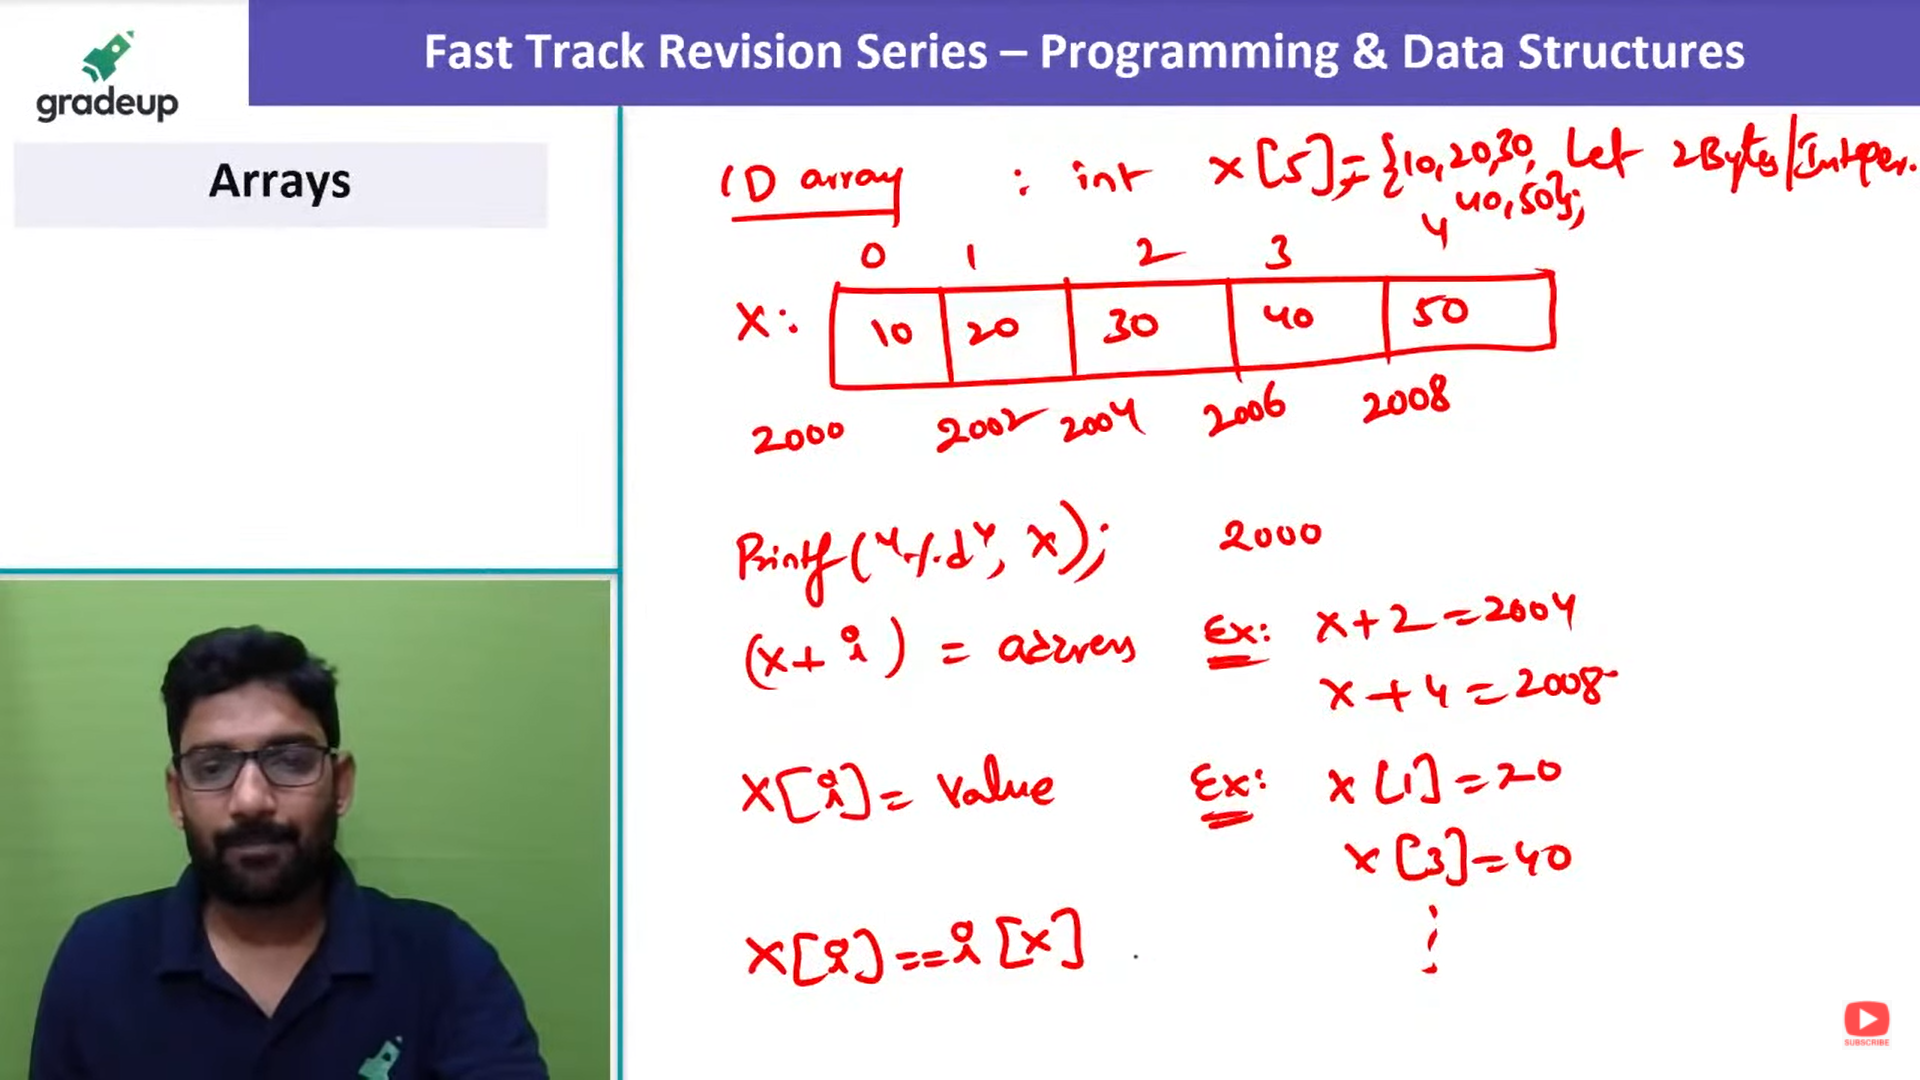 gradeup
Fast Track Revision Series – Programming & Data Structures
Arrays
1D array : int x[5]={10,20,30, Let 2Bytes/Integer.
40,50};
0 1 2 3 4
x: 10 20 30 40 50
2000 2002 2004 2006 2008
Printf("%d", x); 2000
(x+i) = address Ex: x+2=2004
x+4=2008
x[i]= value Ex: x[1]=20
x[3]=40
x[i]==i[x]
SUBSCRIBE